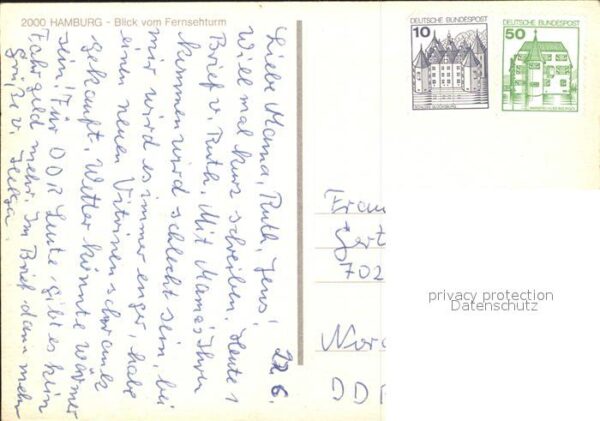 2000 HAMBURG - Blick vom Fernsehturm
22.6.
Liebe Mama, Ruth, Jens!
Will mal kurz schreiben. Heute 1
Brief v. Ruth. Mit Mamas Ihren
kommen wird schlecht sein, bei
mir wird es immer enger, habe
einen neuen Vitrinenschrank
gekauft. Wetter könnte wärmer
sein! Für DDR Leute gibt es kein
Fahrgeld mehr. Im Brief dann mehr
Grüße v. Helga.
DEUTSCHE BUNDESPOST
10
DEUTSCHE BUNDESPOST
50
Frau
Gert
702
Nor
DD
privacy protection
Datenschutz